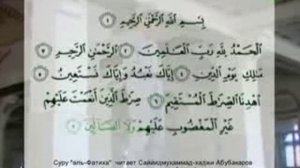 بِسْمِ اللَّهِ الرَّحْمَٰنِ الرَّحِيمِ ١
الْحَمْدُ لِلَّهِ رَبِّ الْعَالَمِينَ ٢ الرَّحْمَٰنِ الرَّحِيمِ ٣
مَالِكِ يَوْمِ الدِّينِ ٤ إِيَّاكَ نَعْبُدُ وَإِيَّاكَ نَسْتَعِينُ ٥
اهْدِنَا الصِّرَاطَ الْمُسْتَقِيمَ ٦ صِرَاطَ الَّذِينَ أَنْعَمْتَ عَلَيْهِمْ
غَيْرِ الْمَغْضُوبِ عَلَيْهِمْ وَلَا الضَّالِّينَ ٧
Суру "аль-Фатиха" читает Саййидмухаммад-хаджи Абубакаров